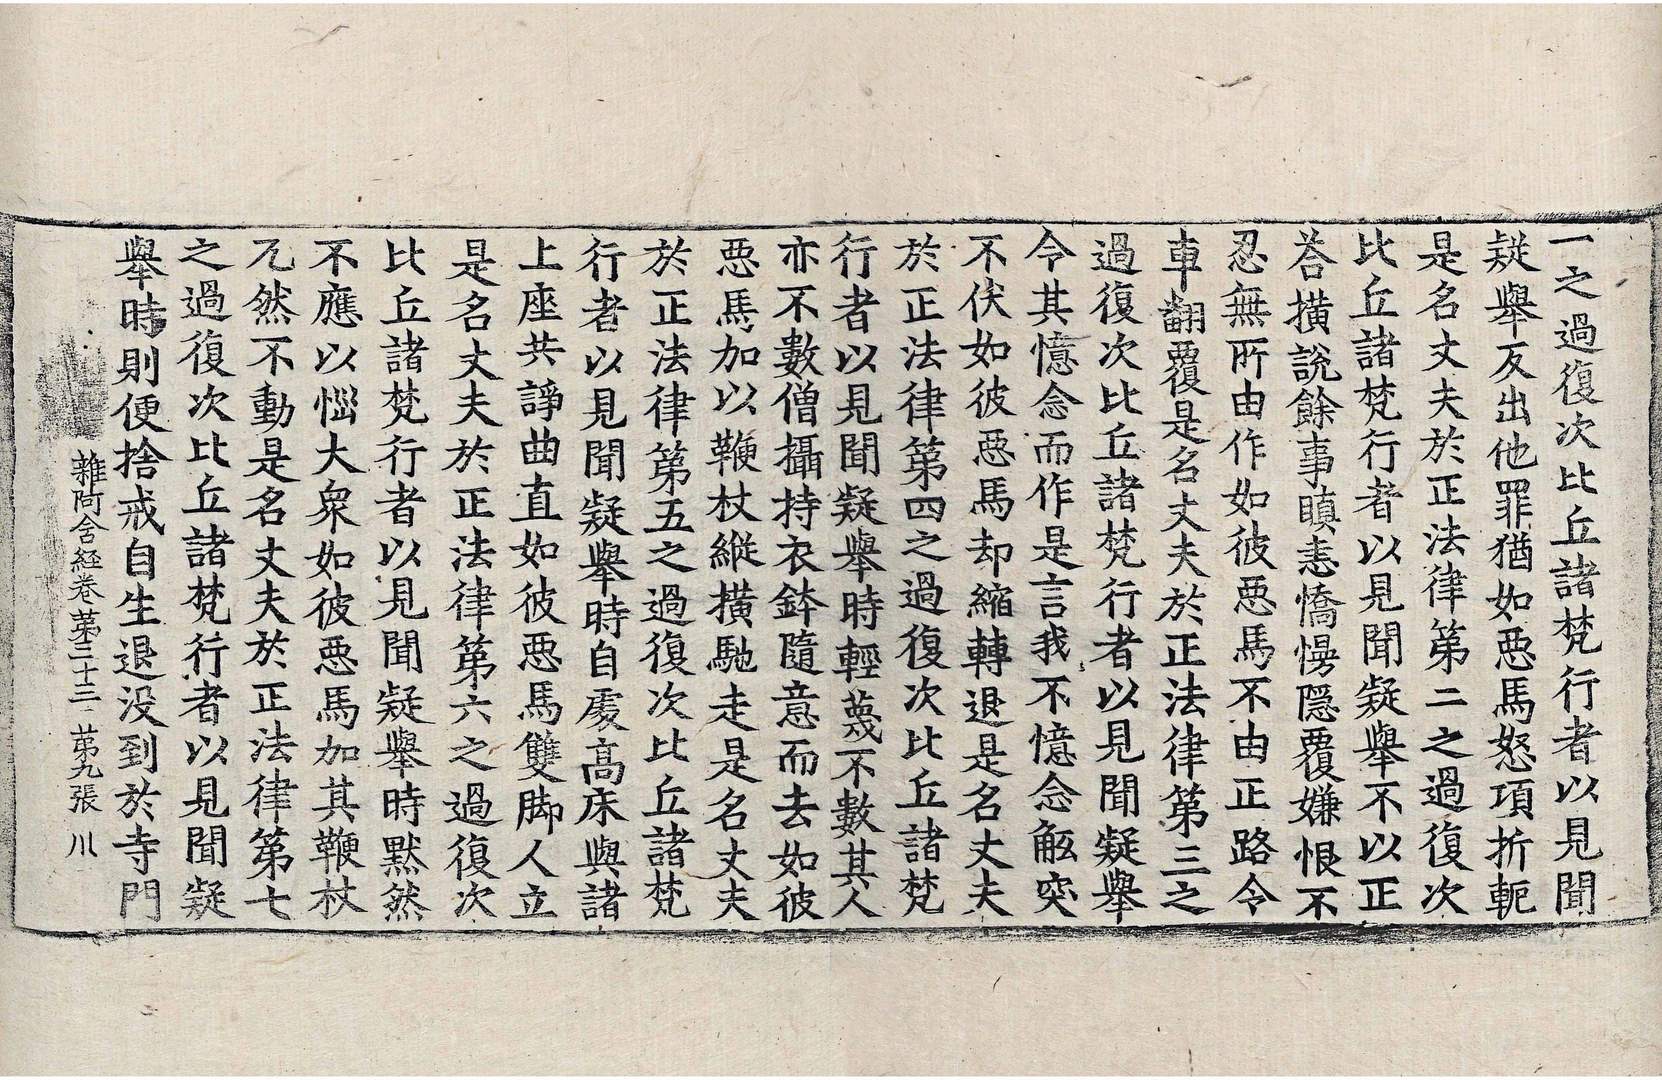 一之過復次比丘諸梵行者以見聞
疑舉反出他罪猶如惡馬怒項折軛
是名丈夫於正法律第二之過復次
比丘諸梵行者以見聞疑舉不以正
荅橫說餘事瞋恚憍慢隱覆嫌恨不
忍無所由作如彼惡馬不由正路令
車翻覆是名丈夫於正法律第三之
過復次比丘諸梵行者以見聞疑舉
令其憶念而作是言我不憶念觝突
不伏如彼惡馬却縮轉退是名丈夫
於正法律第四之過復次比丘諸梵
行者以見聞疑舉時輕蔑不數其人
亦不數僧攝持衣鉢隨意而去如彼
惡馬加以鞭杖縱橫馳走是名丈夫
於正法律第五之過復次比丘諸梵
行者以見聞疑舉時自處高床與諸
上座共諍曲直如彼惡馬雙脚人立
是名丈夫於正法律第六之過復次
比丘諸梵行者以見聞疑舉時默然
不應以惱大衆如彼惡馬加其鞭杖
兀然不動是名丈夫於正法律第七
之過復次比丘諸梵行者以見聞疑
舉時則便捨戒自生退没到於寺門
雜阿含経卷第三十三 苐九張 川